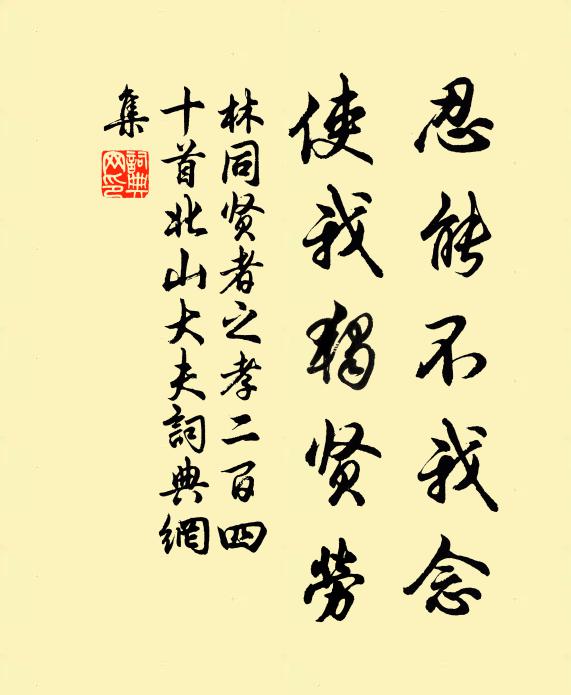 忍能不我念
使我獨贤勞
林同贤者之孝二百四
十首北山大夫詞典網
集
詞典網印